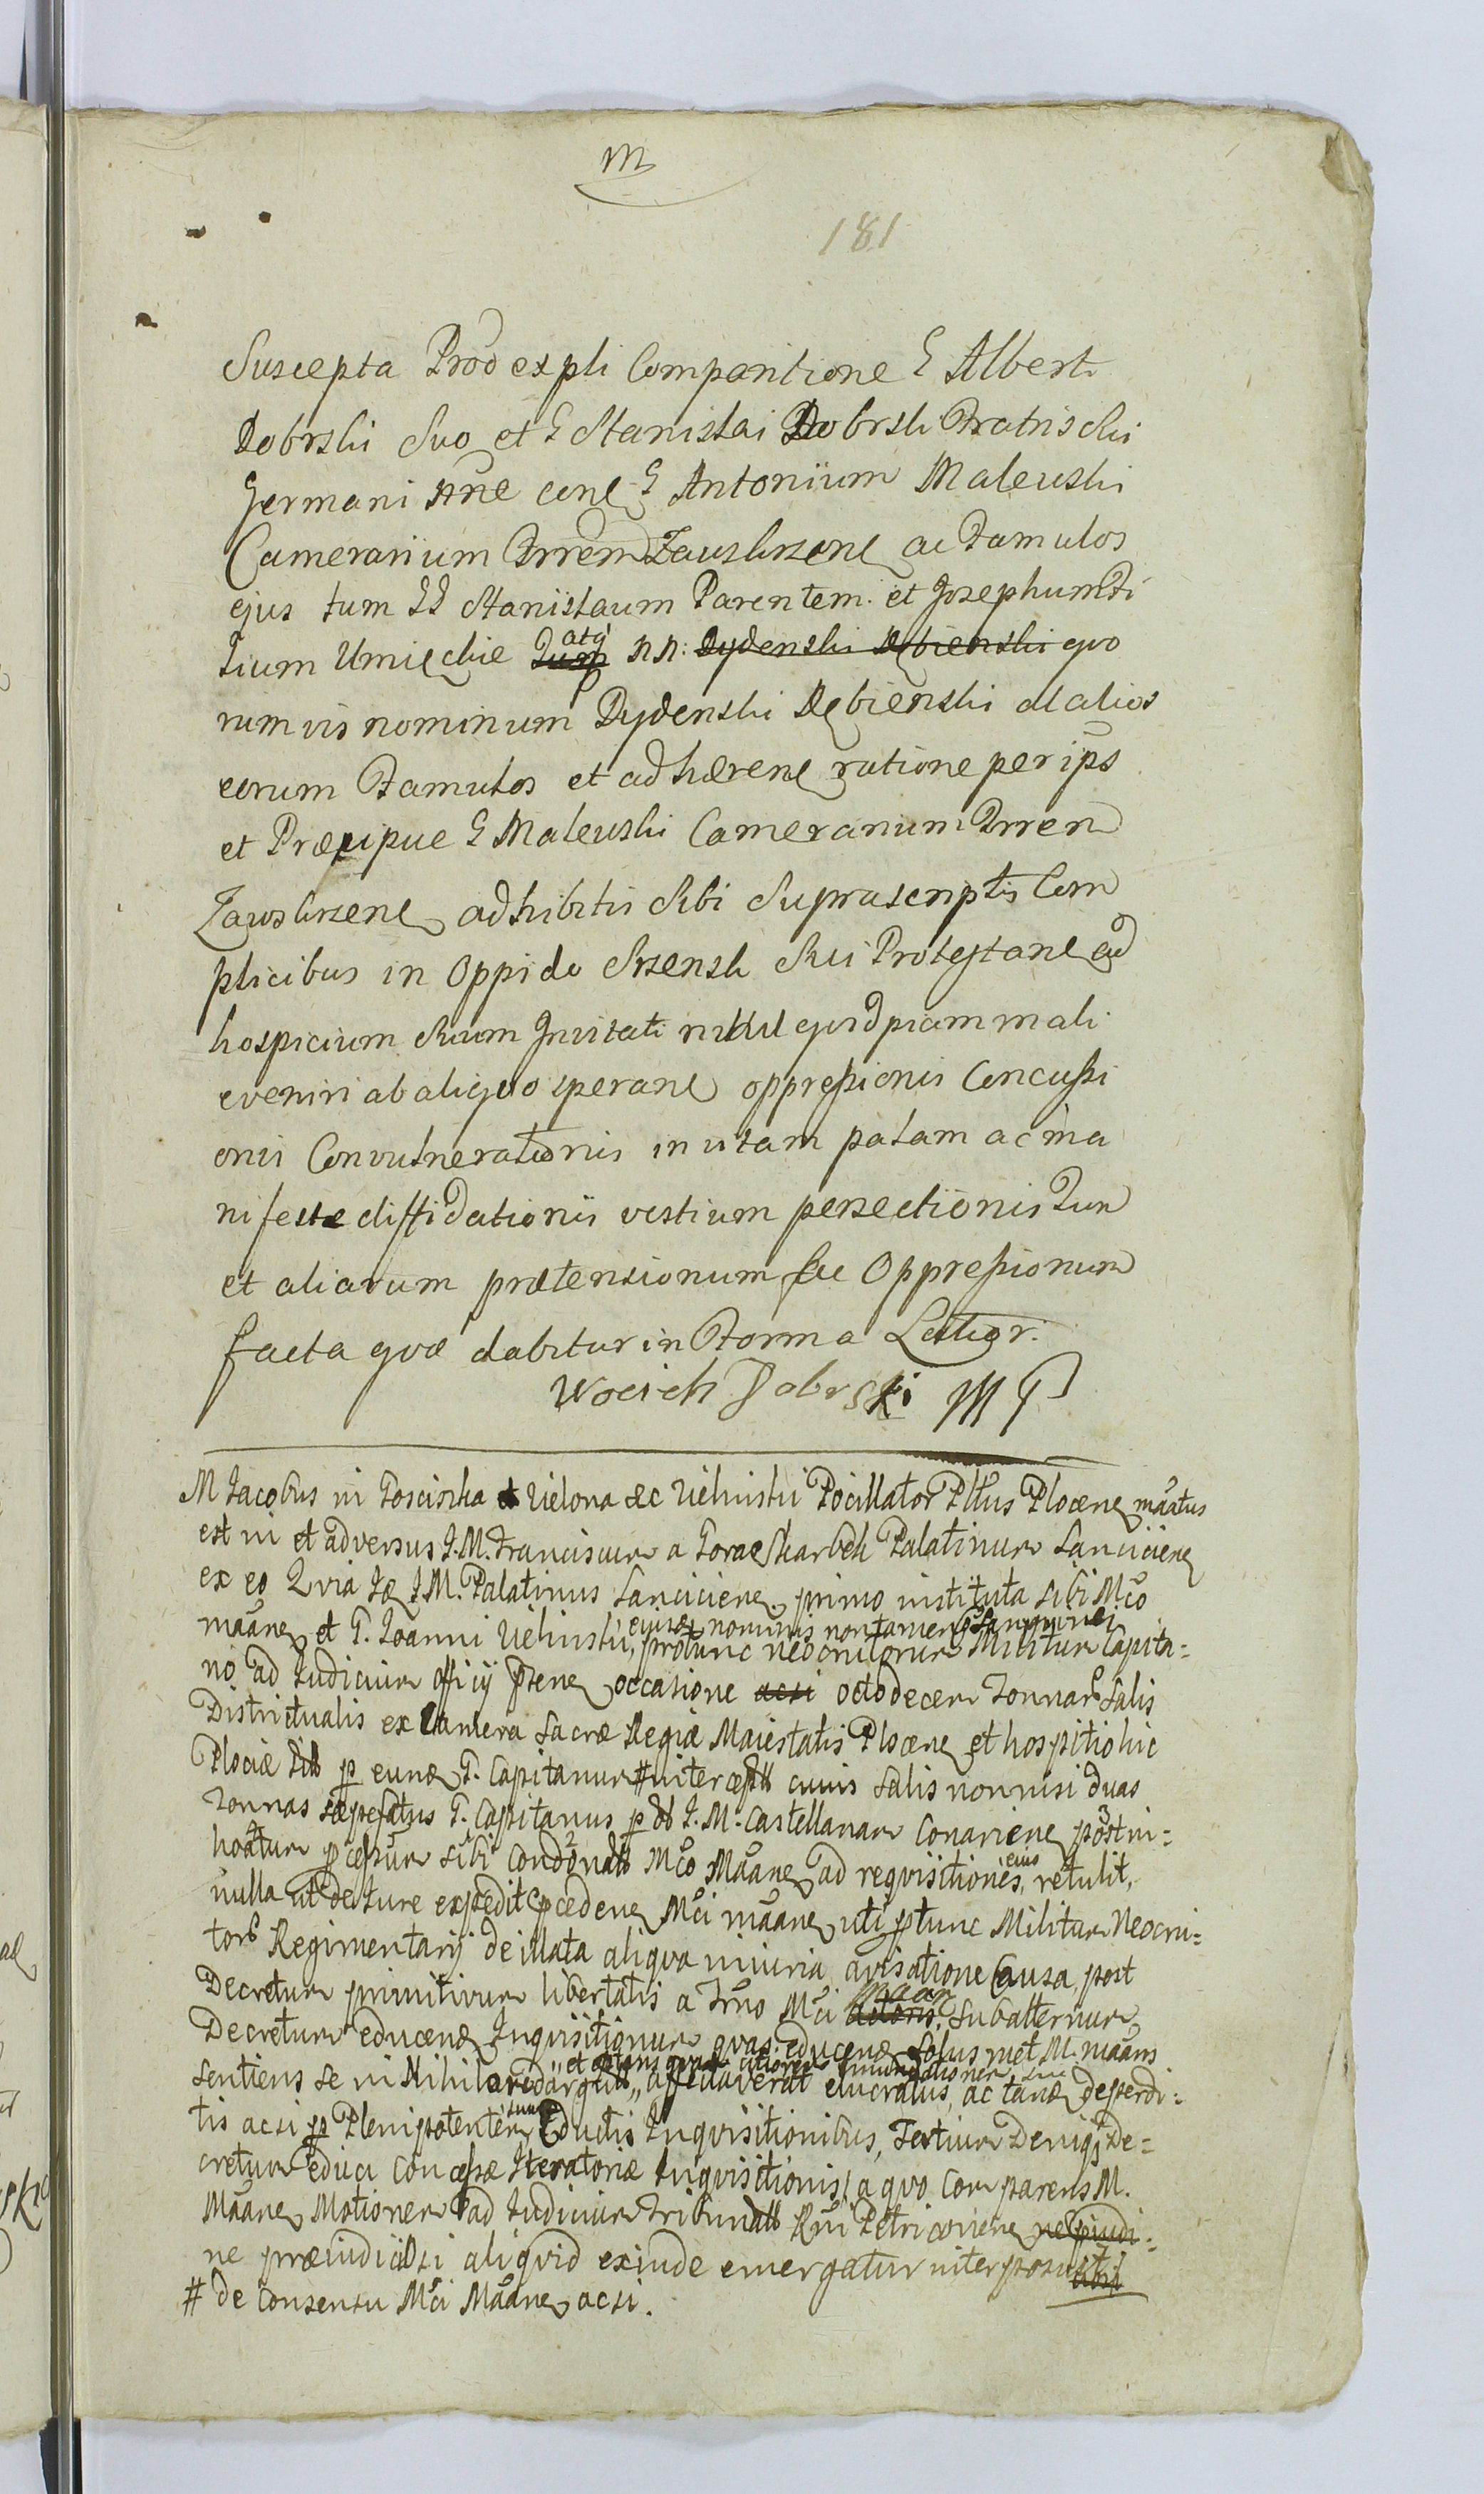 M
181
Suscepta Prod expli Comparitione G Alberti
Dobrski Suo et G Stanislai Dobrsk Fratris Sui
Germani Nne cone G Antonium Malewski
Camerarium Trren Zawskrzene ac Famulos
ejus tum GG Stanislaum Parentem et Josephum Fi
lium Umięckie Tum atq NN: Dydenski Dębienski quo
rumvis nominum Dydenski Dębienski et alios
eorum Famulos et adhærene ratione per ips
et Præcipue G Malewski Camerarium Trren
Zawskrzene adhibitis Sibi Suprascriptis Com
plicibus in Oppido Srzensk Sui Protestane ad
hospicium Suum Invitati nihil quidpiam mali
eveniri ab aliquo sperane oppressionis Concussi
onis Convulnerationis in vitam palam ac ma
nifeste diffidationis vestium persectionis Tum
et aliarum prætensionum ac Oppressionum
facta quæ dabitur in Forma Latior.
Woeich Dobrski MP
M Jacobus in Zoscisska et Zielona &c Zielinski Pocillator Pltus Plocene maatus
est in et adversus J.M. Franciscum a Gorae Skarbek Palatinum Lanciciene
ex eo Quia Id J.M. Palatinus Lanciciene primo instituta sibi Mco
maane et G. Joanni Zielinski, ejusd nominis non tamen Sanguinis
protunc neocrutorum Militum Capita=
no ad Judicium officij psene occasione acti octodecem Tonnar Salis
Districtualis ex Camera Sacræ Regiæ Maiestatis Plocene et hospitio hic
Plociæ p eund G. Capitanum # intercept cuius Salis nonnisi duas
Tonnas sæpefatus G. Capitanus p J.M. Castellanam Conariene post in=
hoatum pcessum sibi condonatas Mco Maane ad requisitiones ejus retulit,
nulla ut de Jure expedit pcedene Mci maane uti ptunc Militum Neocru=
tor Regimentarij de illata aliqua iniuria avisatione Causa, post
Decretum primitivum libertatis a Jrno Mci actoris maan Subalternum
Decretum educend Inquisitionum quas educend Solus met M. maans
sentiens se in Nihilo affectaverat elucratus, ac tand desperdi=
tis acsi p Plenipotentem suum Eductis Inquisitionibus, Tertium Deniq De=
cretum educi concessæ Iteratoriæ Inquisitionis, a quo Comparens M.
Maane Motionem ad Judicium Tribunalis Rni Petricoviene
ne præiudicii aliquid exinde emergatur interposuit
# de Consensu Mci Maane acsi.